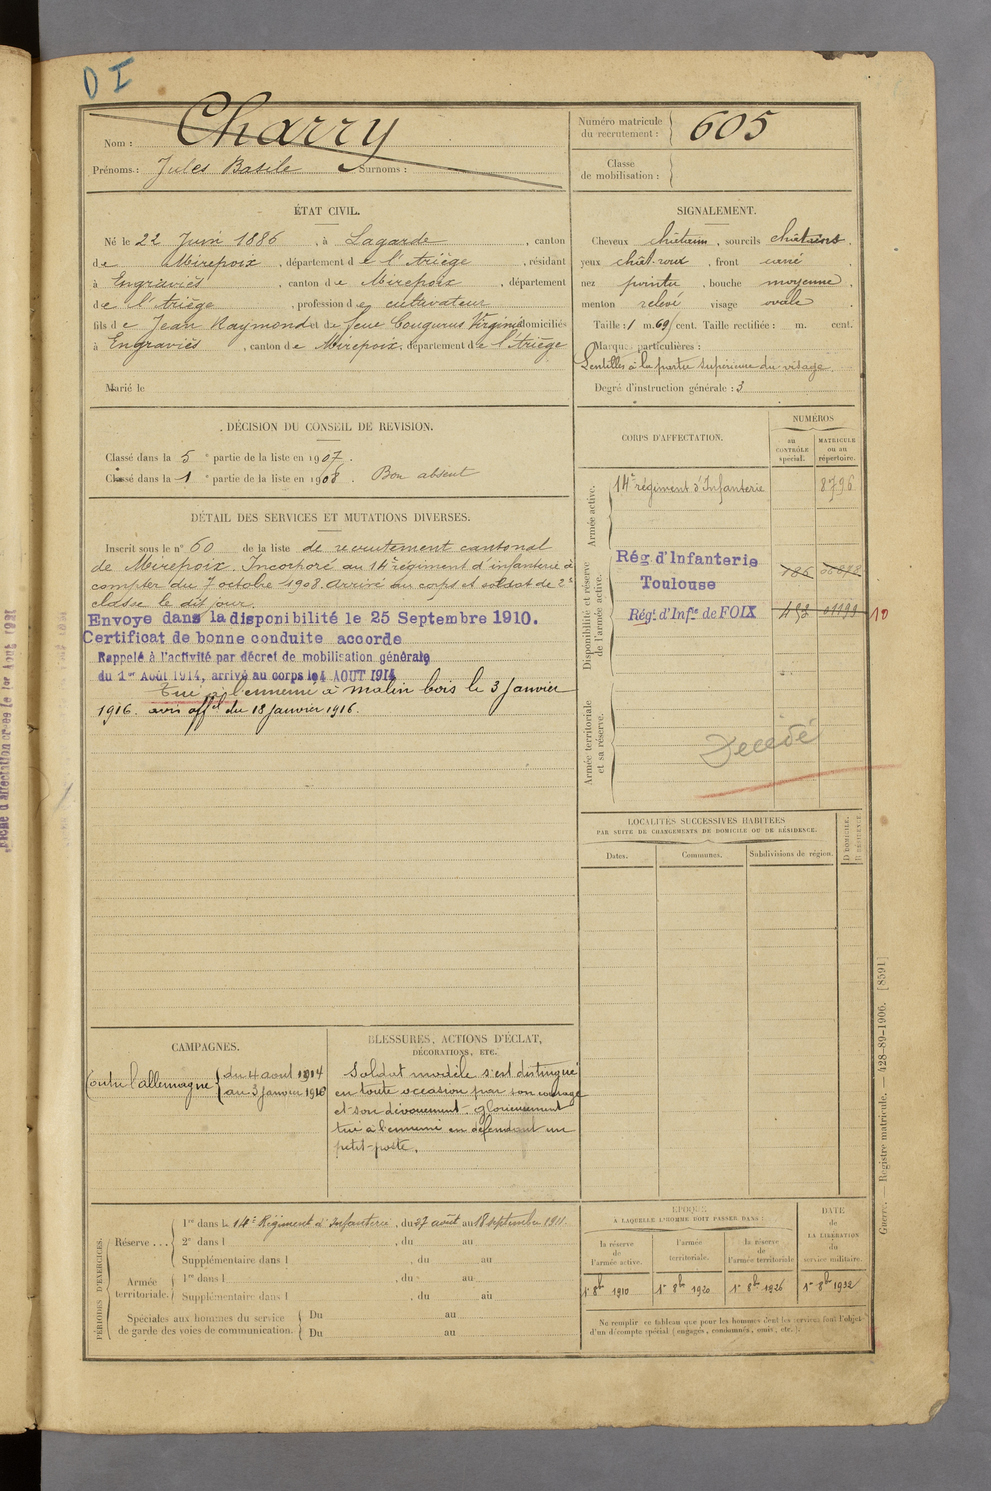 D I
Nom : Charry
Prénoms : Jules Basile Surnoms :
Numéro matricule du recrutement : 605
Classe de mobilisation :
ÉTAT CIVIL.
Né le 22 Juin 1886, à Lagarde, canton
de Mirepoix, département de l'Ariège, résidant
à Engraviès, canton de Mirepoix, département
de l'Ariège, profession de cultivateur
fils de Jean Raymond et de feue Cougurus Virginie domiciliés
à Engraviès, canton de Mirepoix, département de l'Ariège
Marié le
SIGNALEMENT.
Cheveux châtain, sourcils châtains,
yeux chât. roux, front carré,
nez pointu, bouche moyenne,
menton relevé visage ovale.
Taille : 1 m. 69 cent. Taille rectifiée : m. cent.
Marques particulières :
Lentilles à la partie supérieure du visage.
Degré d'instruction générale : 3
DÉCISION DU CONSEIL DE REVISION.
Classé dans la 5e partie de la liste en 1907.
Classé dans la 1e partie de la liste en 1908. Bon absent
DÉTAIL DES SERVICES ET MUTATIONS DIVERSES.
Inscrit sous le n° 60 de la liste de recrutement cantonal
de Mirepoix. Incorporé au 14e régiment d'infanterie à
compter du 7 octobre 1908. Arrivé au corps et soldat de 2e
classe le dit jour.
Envoye dans la disponibilité le 25 Septembre 1910.
Certificat de bonne conduite accorde
Rappelé à l'activité par décret de mobilisation générale
du 1er Août 1914, arrivé au corps le 4 AOUT 1914
Tué à l'ennemi à malin bois le 3 Janvier
1916. avis offel du 18 janvier 1916.
CORPS D'AFFECTATION.
NUMÉROS
au CONTRÔLE spécial.
MATRICULE ou au répertoire.
Armée active.
14e régiment d'Infanterie 8796
Disponibilité et réserve de l'armée active.
Rég. d'Infanterie
Toulouse 186
Régt. d'Infie de FOIX 452 01193 10
Armée territoriale et sa réserve.
Décédé
LOCALITÉS SUCCESSIVES HABITÉES
PAR SUITE DE CHANGEMENTS DE DOMICILE OU DE RÉSIDENCE.
Dates. Communes. Subdivisions de région. D DOMICILE. R RÉSIDENCE.
CAMPAGNES.
Contre l'allemagne du 4 aout 1914
au 3 janvier 1916
BLESSURES, ACTIONS D'ÉCLAT,
DÉCORATIONS, ETC.
Soldat modèle s'est distingué
en toute occasion par son courage
et son dévouement - glorieusement
tué à l'ennemi en défendant un
petit-poste.
PÉRIODES D'EXERCICES.
Réserve ... 1re dans le 14e Régiment d'Infanterie, du 27 août au 18 septembre 1911.
2e dans l , du au
Supplémentaire dans l , du au
Armée territoriale. 1re dans l , du au
Supplémentaire dans l , du au
Spéciales aux hommes du service de garde des voies de communication. Du au
Du au
ÉPOQUE
A LAQUELLE L'HOMME DOIT PASSER DANS :
la réserve de l'armée active.
l'armée territoriale.
la réserve de l'armée territoriale
DATE de LA LIBÉRATION du service militaire.
1er 8bre 1910
1er 8bre 1920
1er 8bre 1926
1er 8bre 1932
Ne remplir ce tableau que pour les hommes dont les services font l'objet
d'un décompte spécial (engagés, condamnés, omis, etc.).
Guerre. — Registre matricule. — 428-89-1906. [8591]